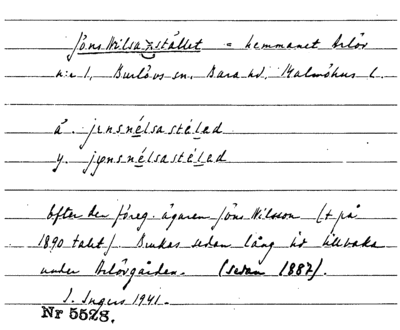 Jöns Nilsa-stället = hemmanet Arlöv
n:r 1, Burlövs sn, Bara hd, Malmöhus l.
å. jɛnsnélsastélɛd
y. jɵnsnélsastélɛd
Efter den föreg. ägaren Jöns Nilsson († på
1890 talet). Brukas sedan lång tid tillbaka
under Arlövgården. (sedan 1887).
I. Ingers 1941.
Nr 5528.